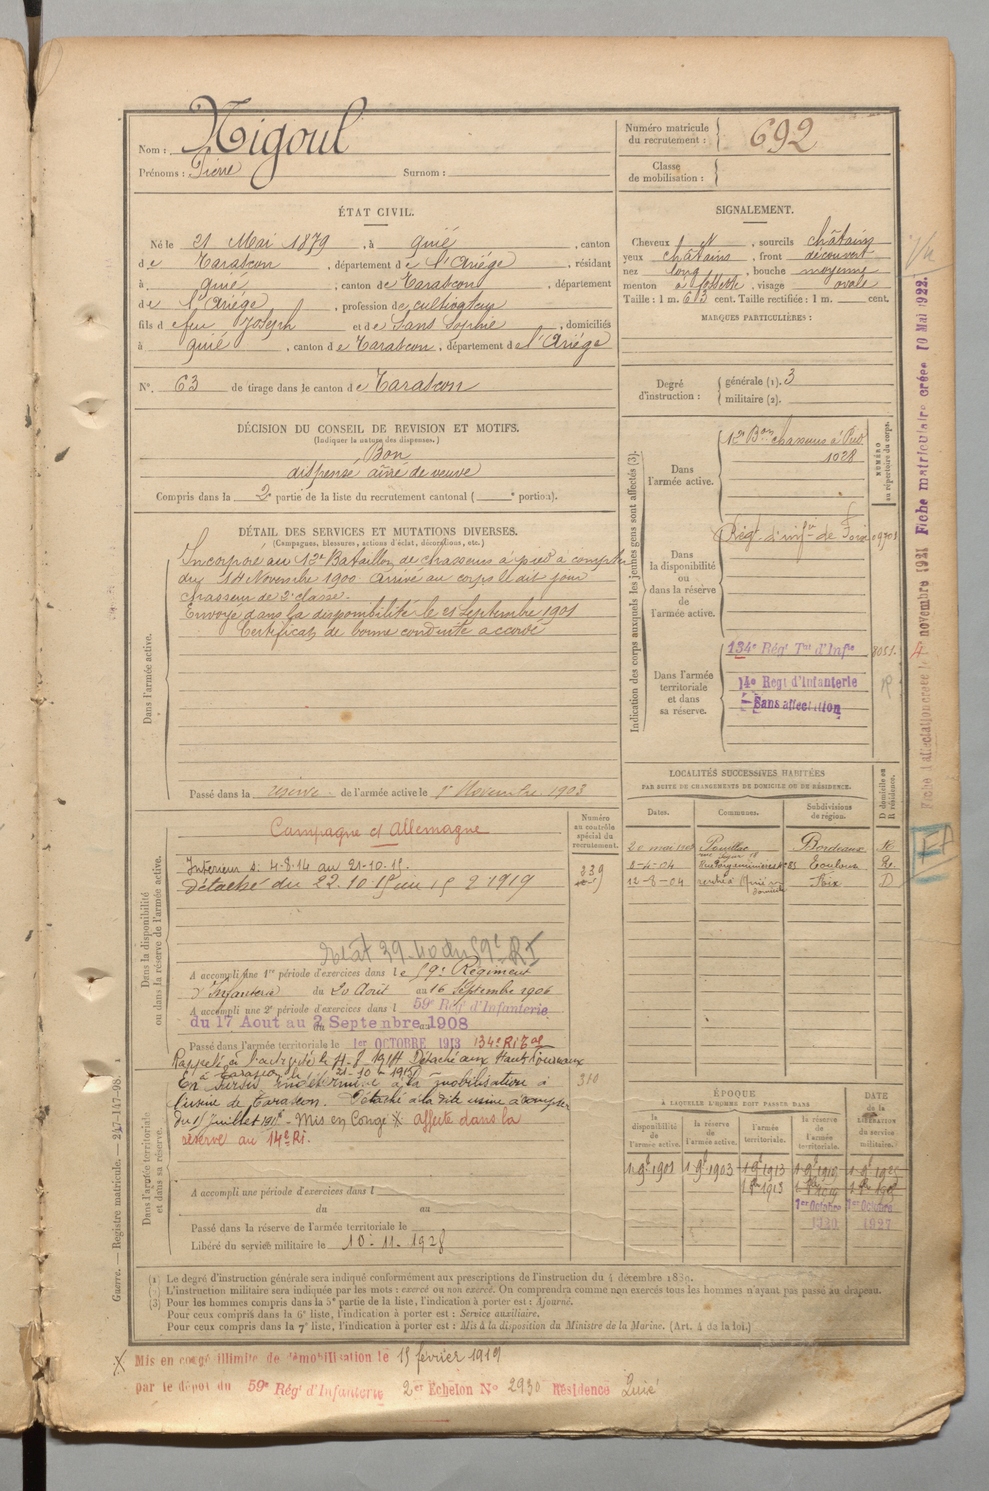 Nom : Nigoul
Prénoms : Pierre Surnom :
Numéro matricule du recrutement : 692
Classe de mobilisation :
ÉTAT CIVIL.
Né le 21 Mai 1879, à Quié, canton
de Tarascon, département de l'Ariége, résidant
à Quié, canton de Tarascon, département
de l'Ariége, profession de cultivateur
fils de feu Joseph et de Sans Sophie, domiciliés
à Quié, canton de Tarascon, département de l'Ariége
N° 63 de tirage dans le canton de Tarascon
SIGNALEMENT.
Cheveux, sourcils châtains
yeux châtains, front découvert
nez long, bouche moyenne
menton à fossette, visage ovale
Taille : 1 m. 613 cent. Taille rectifiée : 1 m. cent.
MARQUES PARTICULIÈRES :
Degré d'instruction : générale (1). 3
militaire (2).
DÉCISION DU CONSEIL DE REVISION ET MOTIFS.
(Indiquer la nature des dispenses.)
Bon
dispensé aîné de veuve
Compris dans la 2e partie de la liste du recrutement cantonal ( e portion).
DÉTAIL DES SERVICES ET MUTATIONS DIVERSES.
(Campagnes, blessures, actions d'éclat, décorations, etc.)
Dans l'armée active.
Incorporé au 12e Bataillon de chasseurs à pied à compter
du 14 Novembre 1900 Arrivé au corps le dit jour
chasseur de 2e classe.
Envoyé dans la disponibilité le 21 Septembre 1901
Certificat de bonne conduite accordé
Passé dans la réserve de l'armée active le 1er Novembre 1903
Indication des corps auxquels les jeunes gens sont affectés (3).
NUMÉRO au répertoire du corps.
Dans l'armée active.
12e Bon chasseurs à Pied
1028
Dans la disponibilité ou dans la réserve de l'armée active.
Régt d'infie de Foix
Dans l'armée territoriale et dans sa réserve.
134e Régt Tal d'Infie
14e Regt d'Infanterie
Sans affectation
LOCALITÉS SUCCESSIVES HABITÉES
PAR SUITE DE CHANGEMENTS DE DOMICILE OU DE RÉSIDENCE.
Dates. Communes. Subdivisions de région. D domicile ou R résidence.
20 mai 1903 Pauillac Bordeaux R
8-4-04 Toulouse R
12-8-04 Foix D
Dans la disponibilité ou dans la réserve de l'armée active.
Numéro au contrôle spécial du recrutement.
Campagne ct Allemagne
Intérieur d: 4-8-14 au 21-10-15.
Détaché du 22.10.15 au 15 2 1919
339
A accompli une 1re période d'exercices dans le 59e Régiment
d'Infanterie du 20 Août au 16 Septembre 1906
A accompli une 2e période d'exercices dans l 59e Rég d'Infanterie
du 17 Aout au 2 Septembre 1908
Passé dans l'armée territoriale le 1er OCTOBRE 1913 134e RI Tal
Dans l'armée territoriale et dans sa réserve.
Rappelé à l'activité le 4-8-1914 Détaché aux Hauts Fourneaux
à Tarascon le 21-10-1915
En sursis indéterminé à la mobilisation à
l'usine de Tarascon. Détaché à la dite usine à compter
du 1er juillet 1917 - Mis en Congé X affecté dans la
réserve au 14e RI.
310
A accompli une période d'exercices dans l
du au
Passé dans la réserve de l'armée territoriale le
Libéré du service militaire le 10-11-1928
ÉPOQUE
À LAQUELLE L'HOMME DOIT PASSER DANS
la disponibilité de l'armée active. la réserve de l'armée active. l'armée territoriale. la réserve de l'armée territoriale.
DATE de la LIBÉRATION du service militaire.
1 9bre 1901 1 9bre 1903 1 9bre 1913
1er Octobre 1er Octobre
1927
(1) Le degré d'instruction générale sera indiqué conformément aux prescriptions de l'instruction du 4 décembre 1889.
(2) L'instruction militaire sera indiquée par les mots : exercé ou non exercé. On comprendra comme non exercés tous les hommes n'ayant pas passé au drapeau.
(3) Pour les hommes compris dans la 5e partie de la liste, l'indication à porter est : Ajourné.
Pour ceux compris dans la 6e liste, l'indication à porter est : Service auxiliaire.
Pour ceux compris dans la 7e liste, l'indication à porter est : Mis à la disposition du Ministre de la Marine. (Art. 4 de la loi.)
X Mis en congé illimité de démobilisation le 15 février 1919
par le dépôt du 59e Rég d'Infanterie 2er Echelon No 2930 Résidence Quié
Guerre. — Registre matricule. — 247-147-98.
Fiche d'affectation créée le 4 novembre 1921 Fiche matriculaire créée 10 Mai 1922.
FA